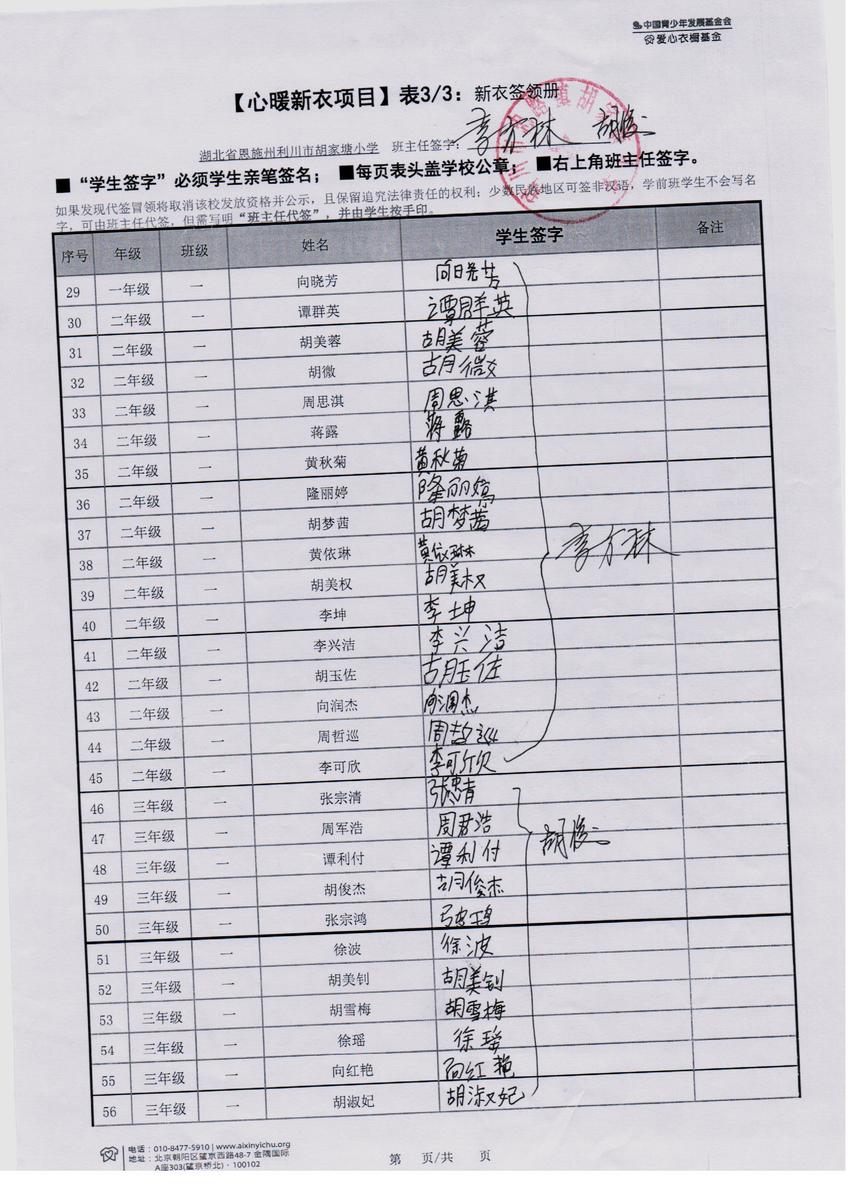 中国青少年发展基金会
爱心衣橱基金
【心暖新衣项目】表3/3：新衣签领册
湖北省恩施州利川市胡家塘小学 班主任签字： 李方林 胡俊
■“学生签字”必须学生亲笔签名； ■每页表头盖学校公章； ■右上角班主任签字。
如果发现代签冒领将取消该校发放资格并公示，且保留追究法律责任的权利；少数民族地区可签非汉语，学前班学生不会写名
字，可由班主任代签，但需写明“班主任代签”，并由学生按手印。
序号 年级 班级 姓名 学生签字 备注
29 一年级 一 向晓芳 向晓芳
30 二年级 一 谭群英 谭群英
31 二年级 一 胡美蓉 胡美蓉
32 二年级 一 胡微 胡微
33 二年级 一 周思淇 周思淇
34 二年级 一 蒋露 蒋露
35 二年级 一 黄秋菊 黄秋菊
36 二年级 一 隆丽婷 隆丽婷
37 二年级 一 胡梦茜 胡梦茜
38 二年级 一 黄依琳 黄依琳 李方林
39 二年级 一 胡美权 胡美权
40 二年级 一 李坤 李坤
41 二年级 一 李兴洁 李兴洁
42 二年级 一 胡玉佐 胡玉佐
43 二年级 一 向润杰 向润杰
44 二年级 一 周哲巡 周哲巡
45 二年级 一 李可欣 李可欣
46 三年级 一 张宗清
47 三年级 一 周军浩 周君浩 胡俊
48 三年级 一 谭利付 谭利付
49 三年级 一 胡俊杰 胡俊杰
50 三年级 一 张宗鸿
51 三年级 一 徐波 徐波
52 三年级 一 胡美钊 胡美钊
53 三年级 一 胡雪梅 胡雪梅
54 三年级 一 徐瑶 徐瑶
55 三年级 一 向红艳 向红艳
56 三年级 一 胡淑妃 胡淑妃
电话：010-8477-5910 | www.aixinyichu.org
地址：北京朝阳区望京西路48-7 金隅国际
A座303(望京桥北)·100102
第 页/共 页